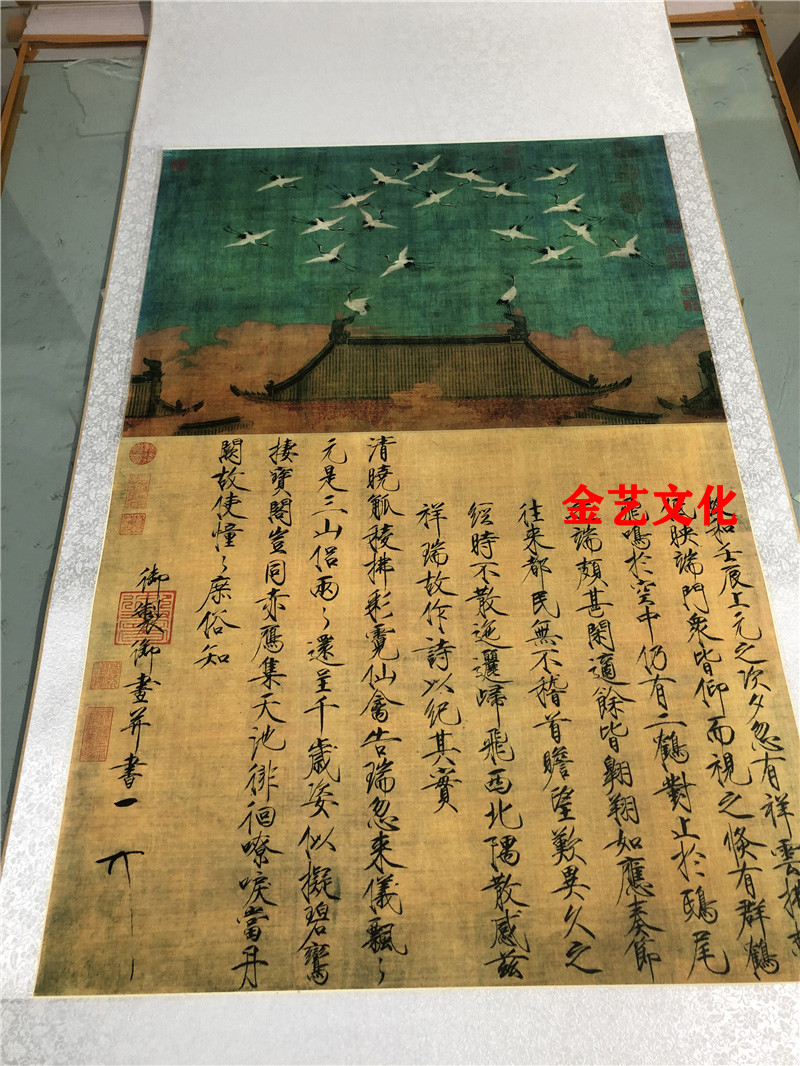 金艺文化
和壬辰上元之次夕忽有祥雲拂
映端門衆皆仰而視之倏有群鶴
飛鳴於空中仍有二鶴對止於鴟尾
端頗甚閑適餘皆翱翔如應奏節
往来都民無不稽首瞻望歎異久之
經時不散迤邐歸飛西北隅散感茲
祥瑞故作詩以紀其實
清曉觚稜拂彩霓仙禽告瑞忽来儀飄〻
元是三山侶兩〻還呈千歲姿似擬碧鸞
棲寶閣豈同赤鴈集天池徘徊嘹唳當丹
闕故使憧〻庶俗知
御製御畫并書